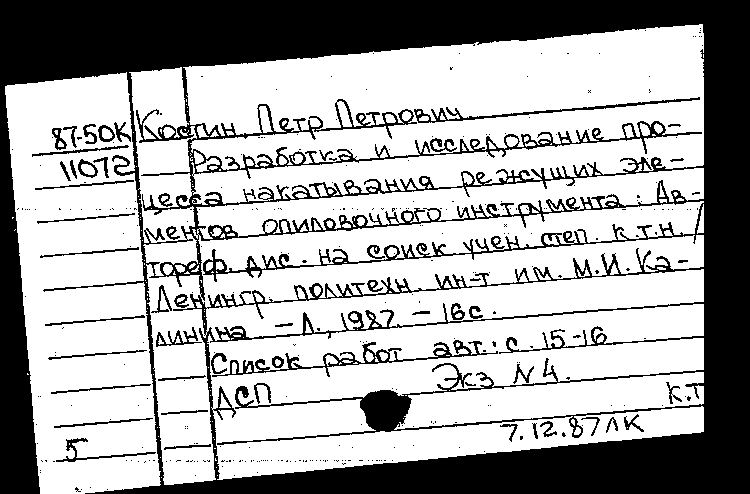 87-50К Костин, Петр Петрович.
11072 Разработка и исследование про-
цесса накатывания режущих эле-
ментов опиловочного инструмента: Ав-
тореф. дис. на соиск учен. степ. к.т.н. /
Ленингр. политехн. ин-т им. М.И. Ка-
линина. - Л., 1987. - 16с.
Список работ авт.: с. 15-16
ДСП Экз N4.
к.т
5 7.12.87ЛК